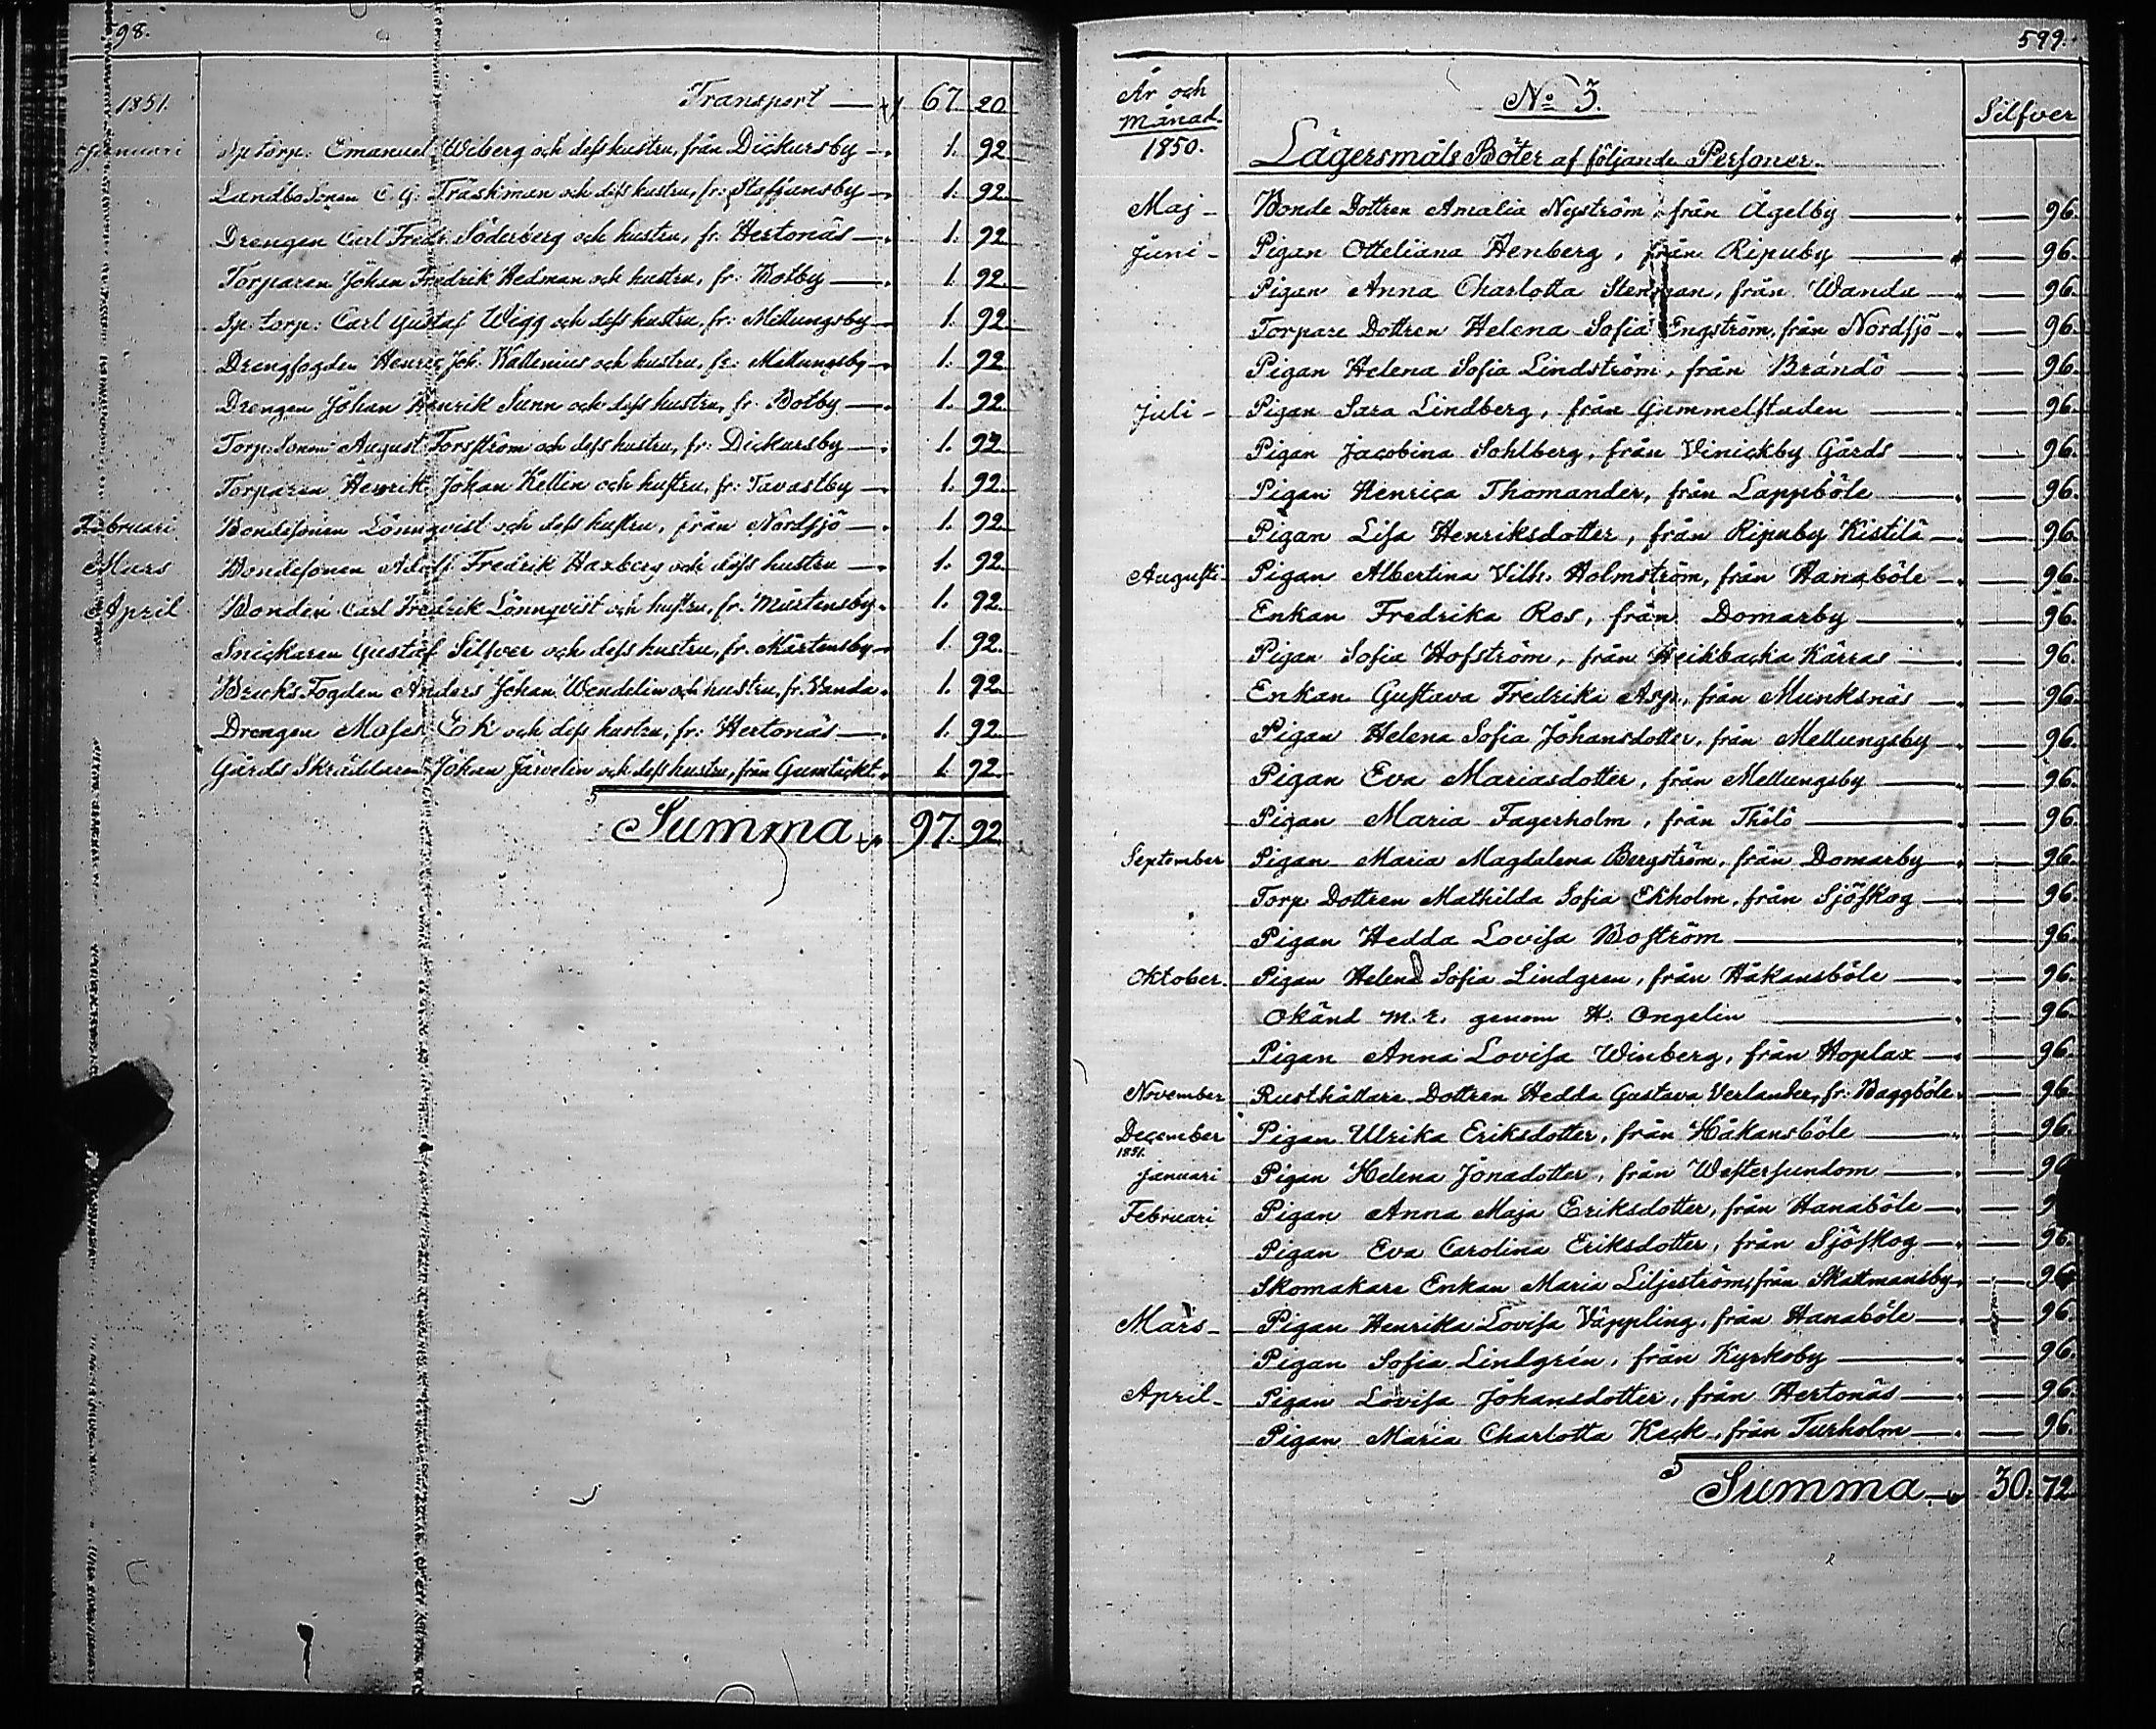 598.
1851. Transport — 67. 20
Januari Sp torp: Emanuel Wiberg och dess hustru, från Dickursby — 1. 92
Landbo Sonen C. G. Träskman och dess hustru, fr: Staffansby — 1. 92
Drengen Carl Fredr. Söderberg och hustru, fr. Hertonäs — 1. 92
Torparen Johan Fredrik Hedman och hustru, fr: Botby — 1. 92
Sp: torp: Carl Gustaf Wigg och dess hustru, fr: Mellungsby — 1. 92
Drengfogden Henric Joh. Kallenius och hustru, fr: Mellungsby — 1. 92
Drengen Johan Henrik Sunn och dess hustru, fr. Botby — 1. 92
Torp: Sonen August Forsström och dess hustru, fr: Dickursby — 1. 92
Torparen Henrik Johan Kellin och hustru, fr: Tavastby — 1. 92
Februari Bondesonen Lönnqvist och dess hustru, från Nordsjö — 1. 92
Mars Bondesonen Adolf Fredrik Haxberg och dess hustru — 1. 92
April Bonden Carl Fredrik Lönnqvist och hustru, fr. Mårtensby. 1. 92
Snickaren Gustaf Silfver och dess hustru, fr. Mårtensby 1. 92
Bruks Fogden Anders Johan Wendelin och hustru, fr. Vanda. 1. 92
Drengen Moses Ek och dess hustru, fr: Hertonäs — 1. 92
Gårds Skräddaren Johan Järvelin och dess hustru, från Gumtäckt. 1. 92
Summa 97. 92
599.
År och Månad. No 3. Silfver
1850. Lägersmåls Böter af följande Personer.
Maj — Bonde Dottren Amalia Nyström, från Ågelby — 96.
Juni — Pigan Otteliana Henberg, från Ripuby — 96.
Pigan Anna Charlotta Stenman, från Wanda — 96.
Torpare Dottren Helena Sofia Engström, från Nordsjö — 96.
Pigan Helena Sofia Lindström, från Brändö — 96.
Juli — Pigan Sara Lindberg, från Gammelstaden — 96.
Pigan Jacobina Sohlberg, från Vinickby Gårds — 96.
Pigan Henrica Thomander, från Lappböle — 96.
Pigan Lisa Henriksdotter, från Ripuby Kistilä — 96.
Augusti — Pigan Albertina Vilh. Holmström, från Hanaböle — 96.
Enkan Fredrika Ros, från Domarby — 96.
Pigan Sofia Hofström, från Heikbacka Kärras — 96.
Enkan Gustava Fredrika Asp, från Munksnäs — 96.
Pigan Helena Sofia Johansdotter, från Mellungsby — 96.
Pigan Eva Mariasdotter, från Mellungsby — 96.
Pigan Maria Fagerholm, från Thölö — 96.
September Pigan Maria Magdalena Bergström, från Domarby — 96.
Torp Dottren Mathilda Sofia Ekholm, från Sjöskog — 96.
Pigan Hedda Lovisa Boström — 96.
Oktober. Pigan Helena Sofia Lindgren, från Håkansböle — 96.
Okänd m. r. genom H. Ongelin — 96.
Pigan Anna Lovisa Winberg, från Hoplax — 96.
November Rusthållare Dottren Hedda Gustava Verlander, fr: Baggböle — 96.
December Pigan Ulrika Eriksdotter, från Håkansböle — 96.
1851.
Januari Pigan Helena Jonadotter, från Westersundom — 96
Februari Pigan Anna Maja Eriksdotter, från Hanaböle — 9
Pigan Eva Carolina Eriksdotter, från Sjöskog — 96.
Skomakare Enkan Maria Liljeström, från Skattmansby — 96
Mars — Pigan Henrika Lovisa Väppling, från Hanaböle — 96.
Pigan Sofia Lindgrén, från Kyrkoby — 96.
April — Pigan Lovisa Johansdotter, från Hertonäs — 96.
Pigan Maria Charlotta Keck, från Turholm — 96.
Summa 30. 72